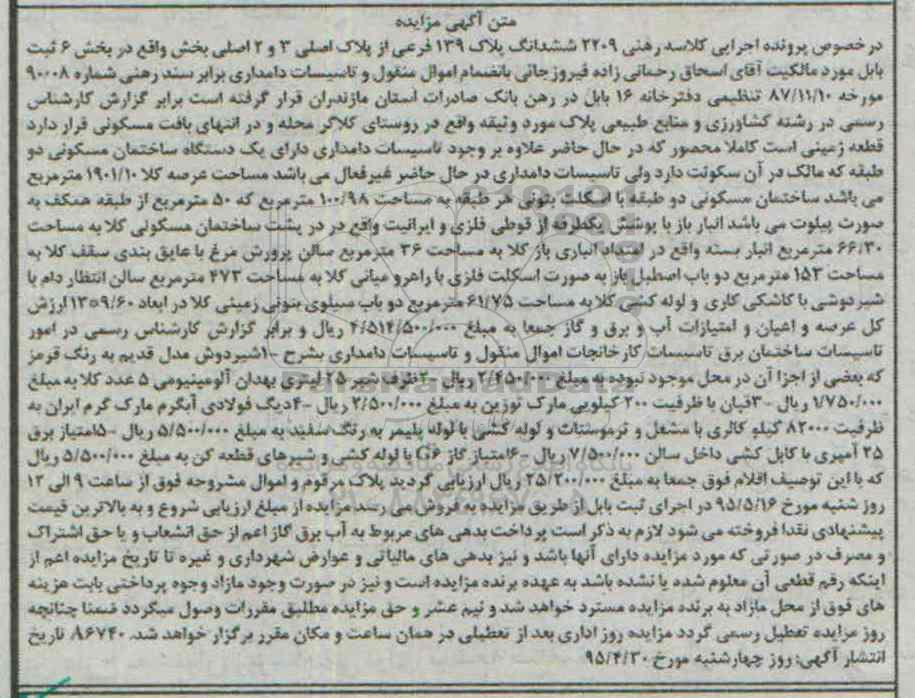 متن آگهی مزایده
در خصوص پرونده اجرایی کلاسه رهنی ۲۲۰۹ ششدانگ پلاک ۱۳۹ فرعی از پلاک اصلی ۳ و ۲ اصلی بخش واقع در بخش ۶ ثبت
بابل مورد مالکیت آقای اسحاق رحمانی زاده فیروزجائی بانضمام اموال منقول و تاسیسات دامداری برابر سند رهنی شماره ۹۰۰۰۸
مورخه ۸۷/۱۱/۱۰ تنظیمی دفترخانه ۱۶ بابل در رهن بانک صادرات استان مازندران قرار گرفته است برابر گزارش کارشناس
رسمی در رشته کشاورزی و منابع طبیعی پلاک مورد وثیقه واقع در روستای کلاگر محله و در انتهای بافت مسکونی قرار دارد
قطعه زمینی است کاملا محصور که در حال حاضر علاوه بر وجود تاسیسات دامداری دارای یک دستگاه ساختمان مسکونی دو
طبقه که مالک در آن سکونت دارد ولی تاسیسات دامداری در حال حاضر غیرفعال می باشد مساحت عرصه کلا ۱۹۰۱/۱۰ مترمربع
می باشد ساختمان مسکونی دو طبقه با اسکلت بتونی هر طبقه به مساحت ۱۰۰/۹۸ مترمربع که ۵۰ مترمربع از طبقه همکف به
صورت پیلوت می باشد انبار باز با پوشش یکطرفه از قوطی فلزی و ایرانیت واقع در در پشت ساختمان مسکونی کلا به مساحت
۶۶/۳۰ مترمربع انبار بسته واقع در امتداد انباری باز کلا به مساحت ۳۶ مترمربع سالن پرورش مرغ با عایق بندی سقف کلا به
مساحت ۱۵۳ مترمربع دو باب اصطبل باز به صورت اسکلت فلزی با راهرو میانی کلا به مساحت ۴۷۳ مترمربع سالن انتظار دام با
شیردوشی با کاشکی کاری و لوله کشی کلا به مساحت ۶۱/۷۵ مترمربع دو باب سیلوی بتونی زمینی کلا در ابعاد ارزش
کل عرصه و اعیان و امتیازات آب و برق و گاز جمعا به مبلغ ۴/۵۱۴/۵۰۰/۰۰۰ ریال و برابر گزارش کارشناس رسمی در امور
تاسیسات ساختمان برق تاسیسات کارخانجات اموال منقول و تاسیسات دامداری بشرح ۱-شیردوش مدل قدیم به رنگ قرمز
که بعضی از اجزا آن در محل موجود نبوده به مبلغ ۲/۴۵۰/۰۰۰ ریال ۲-ظرف شیر ۲۵ لیتری بهدان آلومینیومی ۵ عدد کلا به مبلغ
۱/۷۵۰/۰۰۰ ریال ۳-قپان با ظرفیت ۲۰۰ کیلویی مارک توزین به مبلغ ۲/۵۰۰/۰۰۰ ریال ۴-دیگ فولادی آبگرم مارک گرم ایران به
ظرفیت ۸۲۰۰۰ کیلو کالری با مشعل و ترموستات و لوله کشی با لوله پلیمر به رنگ سفید به مبلغ ۵/۵۰۰/۰۰۰ ریال ۵-امتیاز برق
۲۵ آمپری با کابل کشی داخل سالن ۷/۵۰۰/۰۰۰ ریال ۶-امتیاز گاز G۶ با لوله کشی و شیرهای قطعه کن به مبلغ ۵/۵۰۰/۰۰۰ ریال
که با این توصیف اقلام فوق جمعا به مبلغ ۲۵/۲۰۰/۰۰۰ ریال ارزیابی گردید پلاک مرقوم و اموال مشروحه فوق از ساعت ۹ الی ۱۲
روز شنبه مورخ ۹۵/۵/۱۶ در اجرای ثبت بابل از طریق مزایده به فروش می رسد مزایده از مبلغ ارزیابی شروع و به بالاترین قیمت
پیشنهادی نقدا فروخته می شود لازم به ذکر است پرداخت بدهی های مربوط به آب برق گاز اعم از حق انشعاب و یا حق اشتراک
و مصرف در صورتی که مورد مزایده دارای آنها باشد و نیز بدهی های مالیاتی و عوارض شهرداری و غیره تا تاریخ مزایده اعم از
اینکه رقم قطعی آن معلوم شده یا نشده باشد به عهده برنده مزایده است و نیز در صورت وجود مازاد وجوه پرداختی بابت هزینه
های فوق از محل مازاد به برنده مزایده مسترد خواهد شد و نیم عشر و حق مزایده مطلبق مقررات وصول میگردد ضمنا چنانچه
روز مزایده تعطیل رسمی گردد مزایده روز اداری بعد از تعطیلی در همان ساعت و مکان مقرر برگزار خواهد شد. ۸۶۷۴۰ تاریخ
انتشار آگهی: روز چهارشنبه مورخ ۹۵/۴/۳۰